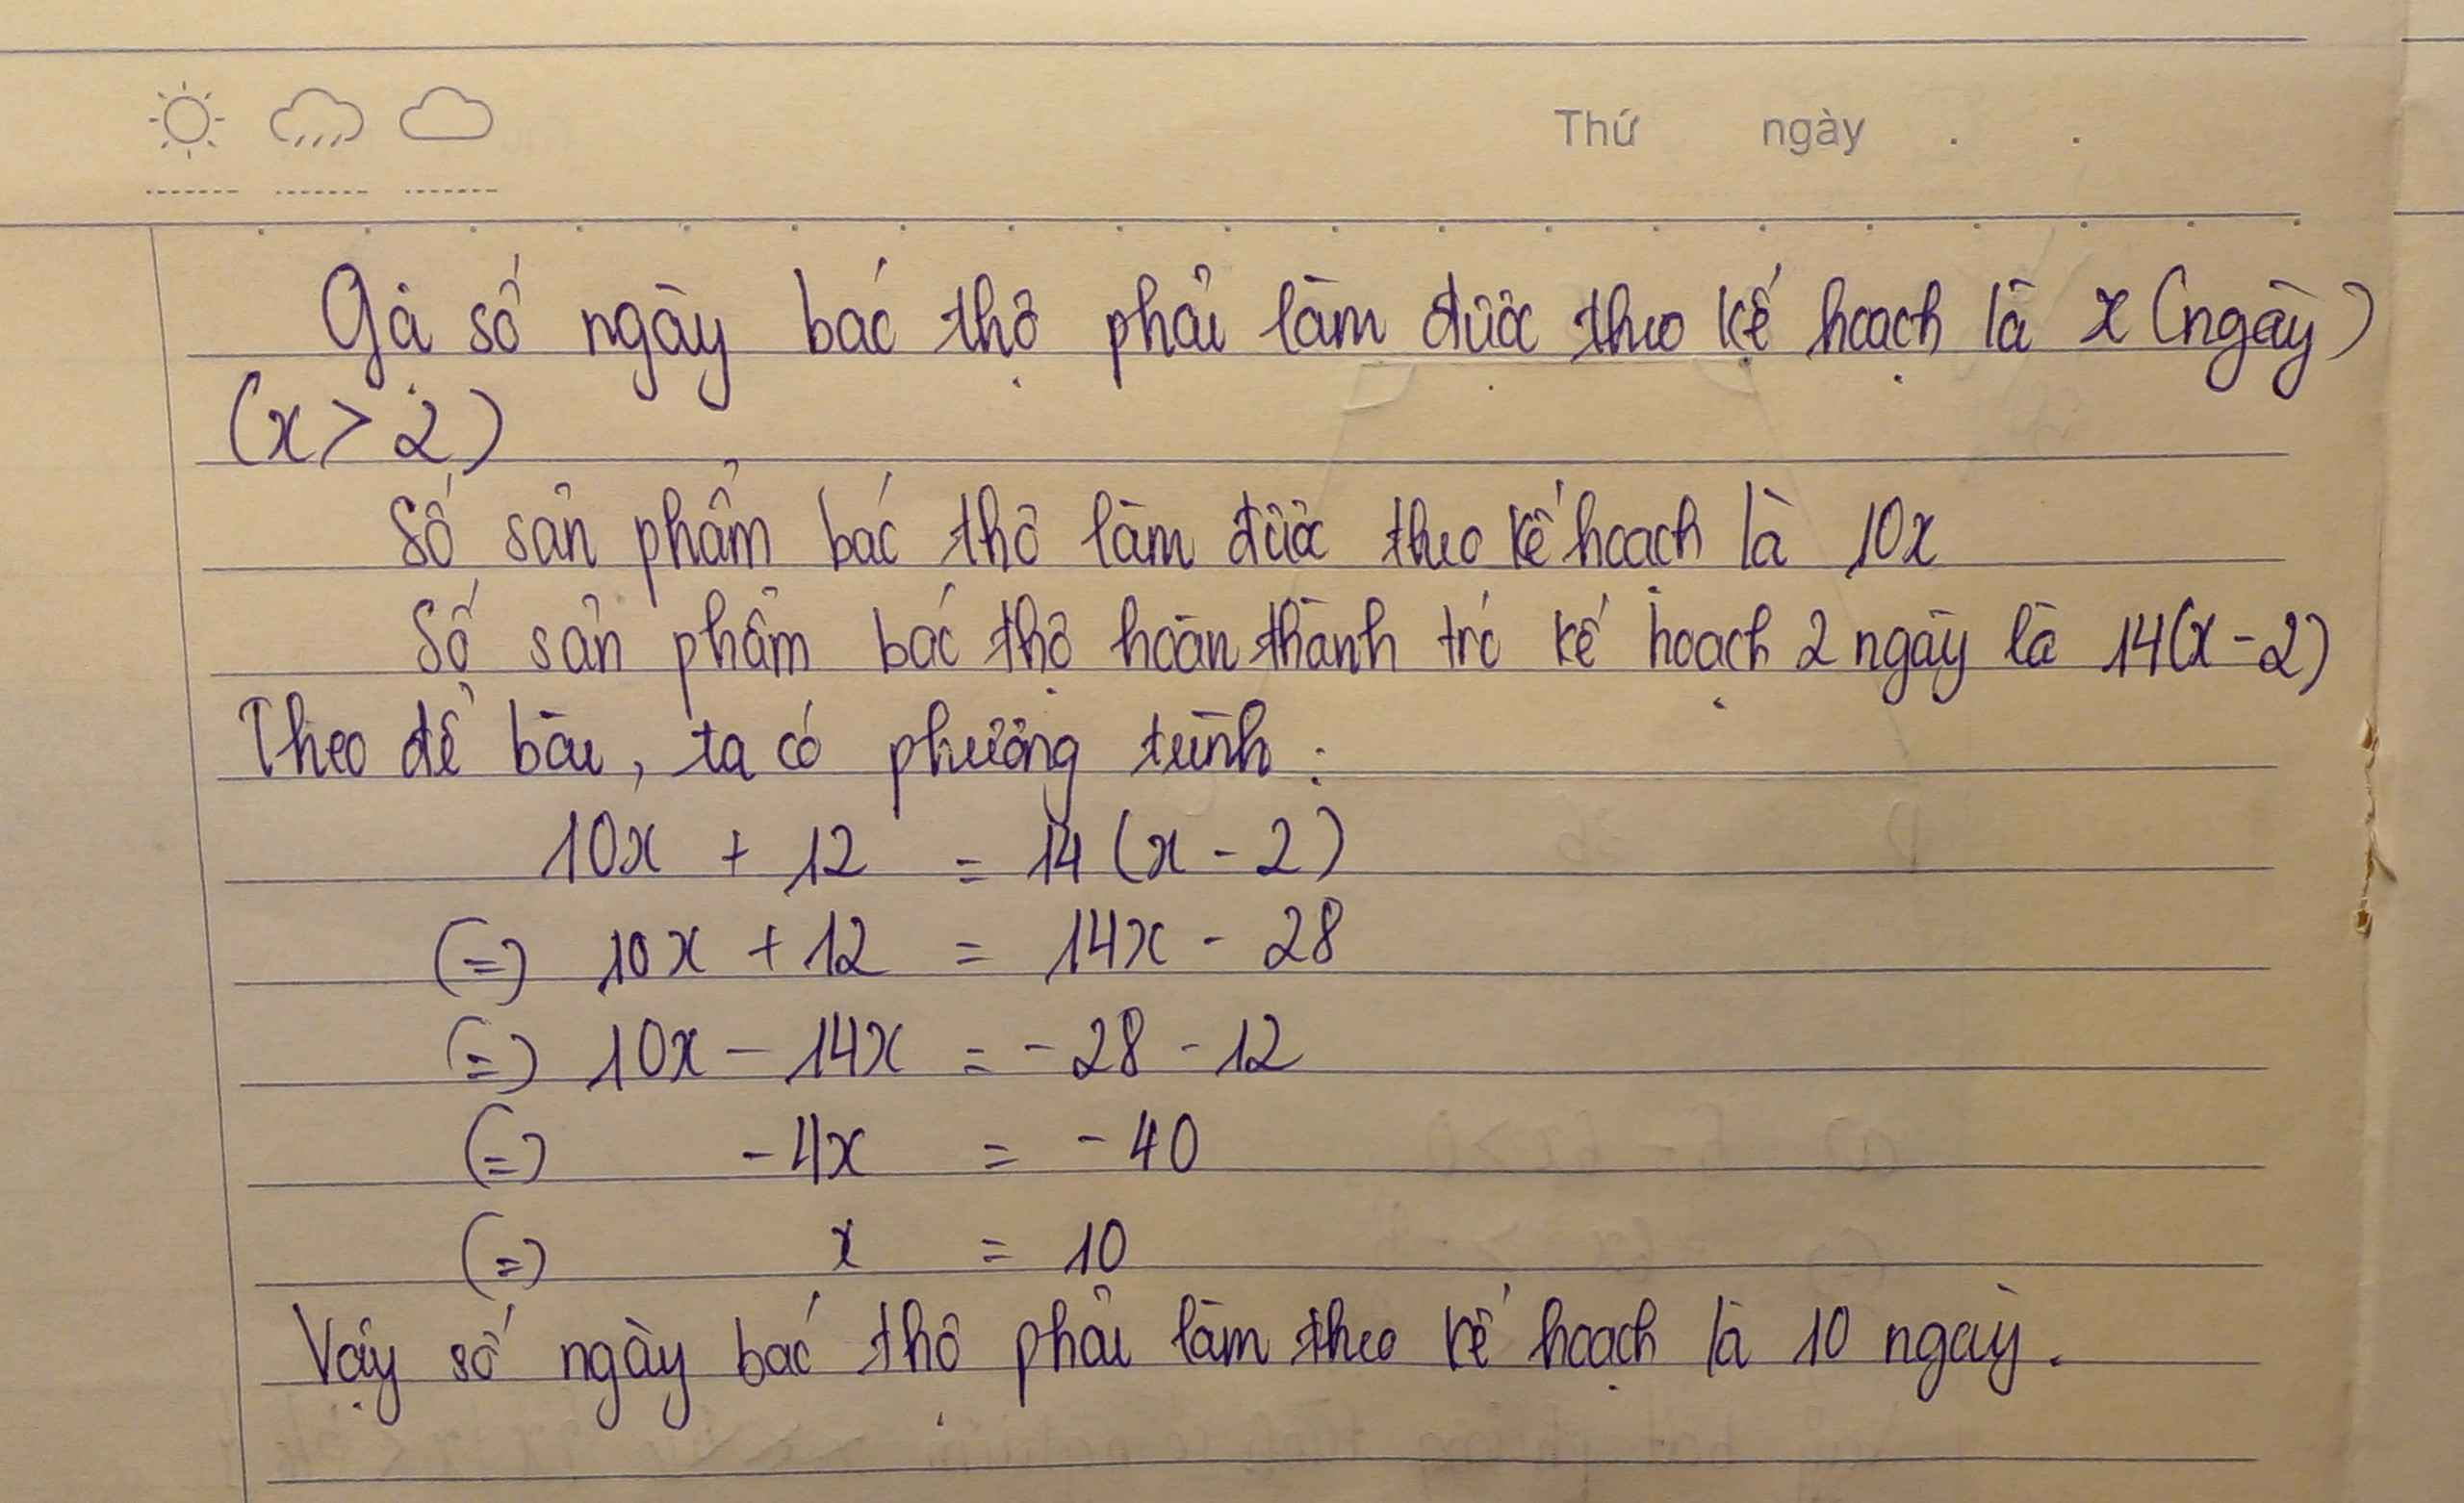 Thứ ngày . .
Gọi số ngày bác thợ phải làm được theo kế hoạch là x (ngày)
(x > 2)
Số sản phẩm bác thợ làm được theo kế hoạch là 10x
Số sản phẩm bác thợ hoàn thành trc kế hoạch 2 ngày là 14(x - 2)
Theo đề bài, ta có phương trình :
10x + 12 = 14 (x - 2)
(=) 10x + 12 = 14x - 28
(=) 10x - 14x = - 28 - 12
(=) - 4x = - 40
(=) x = 10
Vậy số ngày bác thợ phải làm theo kế hoạch là 10 ngày.